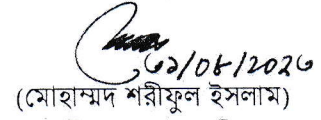 ৩১/০৮/২০২৩
(মোহাম্মদ শরীফুল ইসলাম)